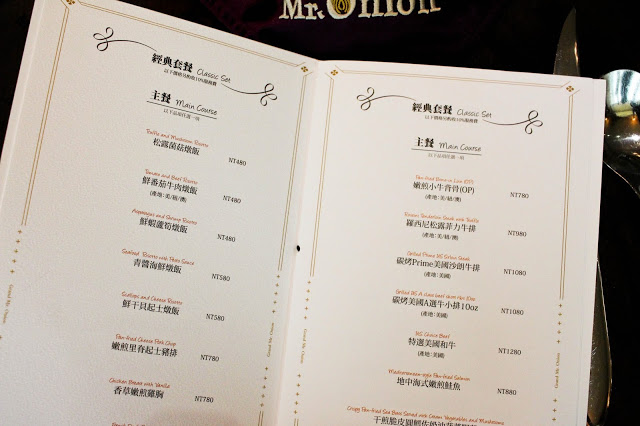 Mr. Onion
經典套餐 Classic Set
以下價格另酌收10%服務費
主餐 Main Course
以下品項任選一項
Truffle and Mushroom Risotto
松露菌菇燉飯 NT480
Tomato and Beef Risotto
鮮番茄牛肉燉飯 NT480
(產地:美/紐/澳)
Asparagus and Shrimp Risotto
鮮蝦蘆筍燉飯 NT480
Seafood Risotto with Pesto Sauce
青醬海鮮燉飯 NT580
Scallops and Cheese Risotto
鮮干貝起士燉飯 NT580
Pan-fried Cheese Pork Chop
嫩煎里脊起士豬排 NT780
Chicken Breast with Vanilla
香草嫩煎雞胸 NT780
Grand Mr. Onion
經典套餐 Classic Set
以下價格另酌收10%服務費
主餐 Main Course
以下品項任選一項
嫩煎小牛膏骨(OP) NT780
(產地:美/紐/澳)
羅西尼松露菲力牛排 NT980
(產地:美/紐/澳)
Grilled Prime US Sirloin Steak
碳烤Prime美國沙朗牛排 NT1080
(產地:美國)
碳烤美國A選牛小排10oz NT1080
(產地:美國)
US Choice Beef
特選美國和牛 NT1280
(產地:美國)
Mediterranean-style Pan-fried Salmon
地中海式嫩煎鮭魚 NT880
Crispy Pan-fried Sea Bass Served with Cream Vegetables and Madeleine
Grand Mr. Onion